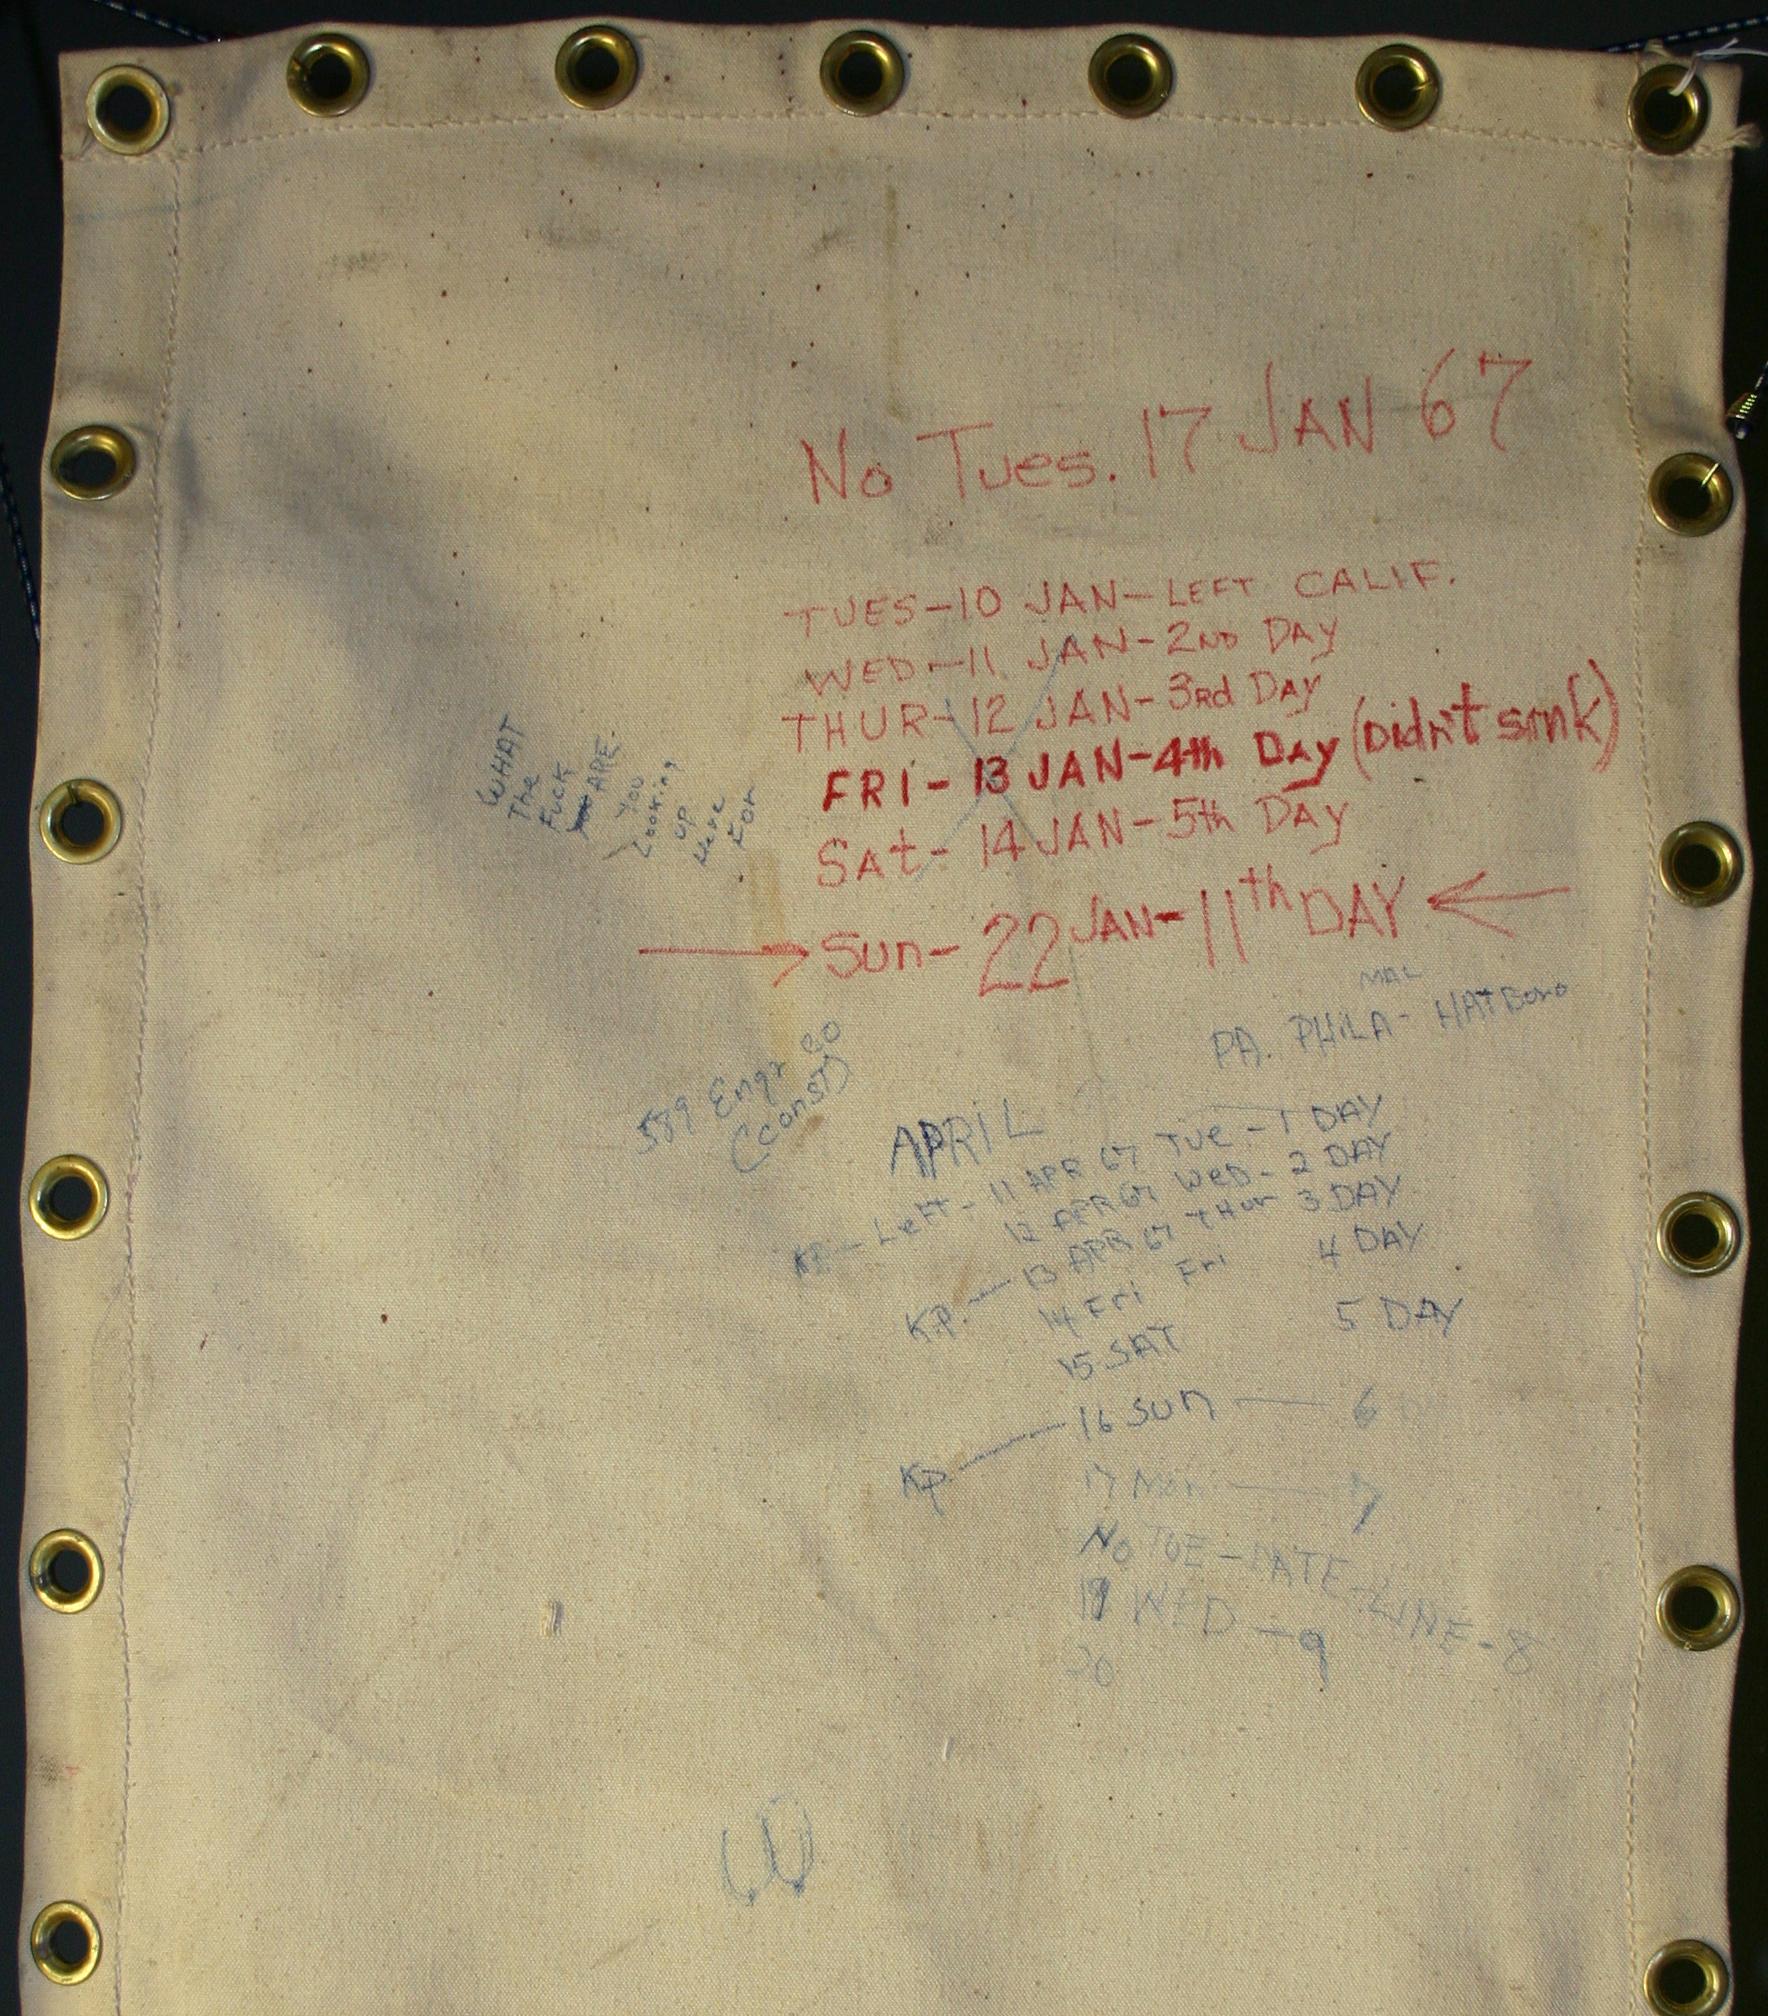 No Tues. 17 JAN 67
TUES-10 JAN-LEFT CALIF.
WED-11 JAN-2ND DAY
THUR-12 JAN-3rd DAY
FRI-13 JAN-4th DAY (Didn't sink)
SAt-14 JAN-5th DAY
Sun-22 JAN-11th DAY
WHAT
The
Fuck
ARE.
You
Looking
up
Here
For
PA. PHILA- HATBoro
589 Engr Co
(const)
APRIL
KP-LeFt-11 APR 67 Tue-1 DAY
12 APR 67 WeD-2 DAY
K.P.-13 APR 67 THur 3 DAY
14 Fri Fri 4 DAY
15 SAT 5 DAY
KP-16 SUN-6
17 Mon-7
No TUE-DATE-LINE-8
19 WED-9
20